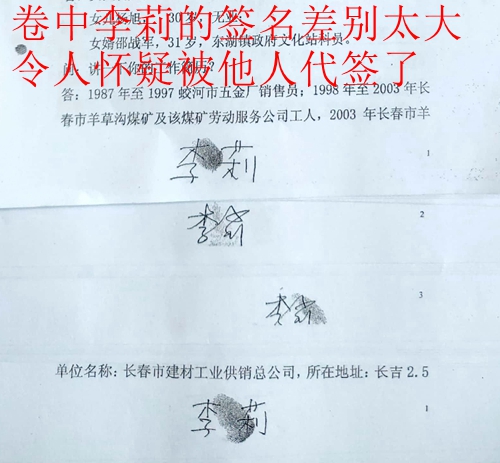 卷中李莉的签名差别太大
令人怀疑被他人代签了
女婿邵战军，31岁，东湖镇政府文化站科员。
答：1987年至1997蛟河市五金厂销售员；1998年至2003年长
春市羊草沟煤矿及该煤矿劳动服务公司工人，2003年长春市羊
李莉
1
李莉
2
李莉
3
单位名称：长春市建材工业供销总公司，所在地址：长吉2.5
李莉
1